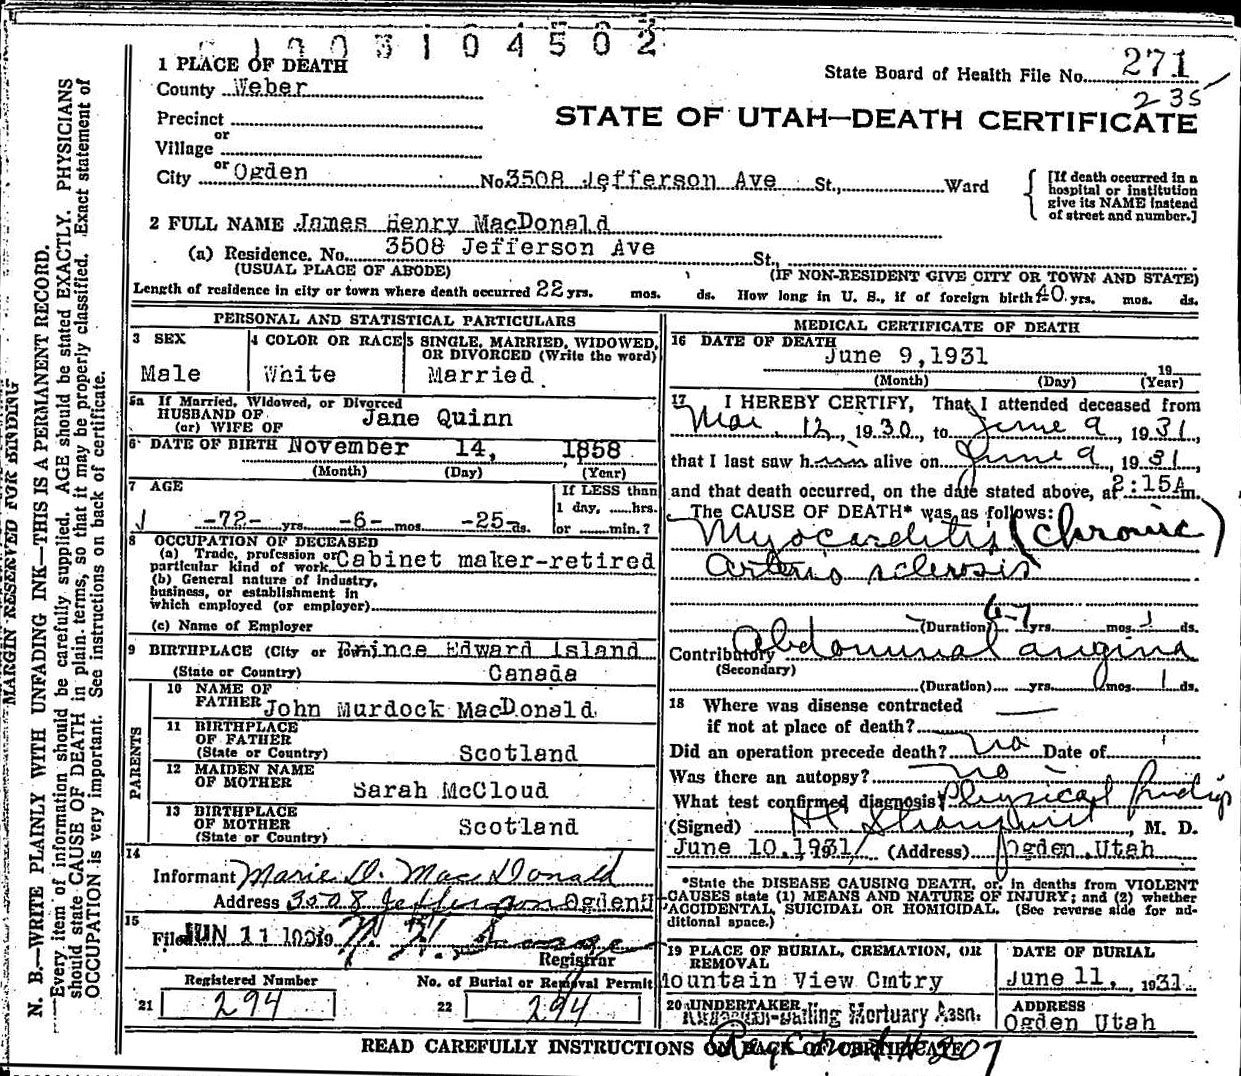 1003104502
1 PLACE OF DEATH
State Board of Health File No. 271
235
County Weber
STATE OF UTAH—DEATH CERTIFICATE
Precinct
or
Village
or
City Ogden No. 3508 Jefferson Ave St., Ward
[If death occurred in a hospital or institution give its NAME instead of street and number.]
2 FULL NAME James Henry MacDonald
(a) Residence. No. 3508 Jefferson Ave St.,
(USUAL PLACE OF ABODE) (IF NON-RESIDENT GIVE CITY OR TOWN AND STATE)
Length of residence in city or town where death occurred 22 yrs. mos. ds. How long in U. S., if of foreign birth? 40 yrs. mos. ds.
PERSONAL AND STATISTICAL PARTICULARS
3 SEX
Male
4 COLOR OR RACE
White
5 SINGLE, MARRIED, WIDOWED, OR DIVORCED (Write the word)
Married
5a If Married, Widowed, or Divorced
HUSBAND OF
(or) WIFE OF Jane Quinn
6 DATE OF BIRTH November 14, 1858
(Month) (Day) (Year)
7 AGE
-72- yrs. -6- mos. -25- ds.
If LESS than
1 day, ......hrs.
or ......min.?
8 OCCUPATION OF DECEASED
(a) Trade, profession or
particular kind of work Cabinet maker-retired
(b) General nature of industry,
business, or establishment in
which employed (or employer)
(c) Name of Employer
9 BIRTHPLACE (City or Prince Edward Island
(State or Country) Canada
PARENTS
10 NAME OF
FATHER John Murdock MacDonald
11 BIRTHPLACE
OF FATHER
(State or Country) Scotland
12 MAIDEN NAME
OF MOTHER Sarah McCloud
13 BIRTHPLACE
OF MOTHER
(State or Country) Scotland
14
Informant Marie D. MacDonald
Address 3508 Jefferson Ogden
15
Filed JUN 11 1931
Registrar
Registered Number
21 294
No. of Burial or Removal Permit
22 294
MEDICAL CERTIFICATE OF DEATH
16 DATE OF DEATH
June 9, 1931 19
(Month) (Day) (Year)
17 I HEREBY CERTIFY, That I attended deceased from
Mar. 12, 1930, to June 9, 1931,
that I last saw him alive on June 9, 1931,
and that death occurred, on the date stated above, at 2:15A m.
The CAUSE OF DEATH* was as follows:
Myocarditis (chronic)
Arterio sclerosis
(Duration) 6-7 yrs. mos. ds.
Contributory Abdominal angina
(Secondary)
(Duration) yrs. mos. 1 ds.
18 Where was disease contracted
if not at place of death?
Did an operation precede death? No Date of
Was there an autopsy? no
What test confirmed diagnosis? Physical findings
(Signed) , M. D.
June 10, 1931 (Address) Ogden, Utah
*State the DISEASE CAUSING DEATH, or, in deaths from VIOLENT
CAUSES state (1) MEANS AND NATURE OF INJURY; and (2) whether
ACCIDENTAL, SUICIDAL OR HOMICIDAL. (See reverse side for additional space.)
19 PLACE OF BURIAL, CREMATION, OR
REMOVAL
Mountain View Cmtry
DATE OF BURIAL
June 11, 1931
20 UNDERTAKER
Mortuary Assn.
ADDRESS
Ogden Utah
READ CAREFULLY INSTRUCTIONS ON BACK OF CERTIFICATE
207
MARGIN RESERVED FOR BINDING
N. B.—WRITE PLAINLY WITH UNFADING INK—THIS IS A PERMANENT RECORD.
Every item of information should be carefully supplied. AGE should be stated EXACTLY. PHYSICIANS
should state CAUSE OF DEATH in plain terms, so that it may be properly classified. Exact statement of
OCCUPATION is very important. See instructions on back of certificate.